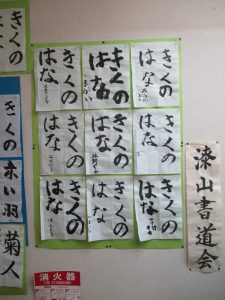 きくの
はな
きくの
はな
きくの
はな
きくの
はな
きくの
はな
きくの
はな
きくの
はな
きくの
はな
きくの
はな
漆山書道会
きくの
きくの
赤い羽
菊人
消火器